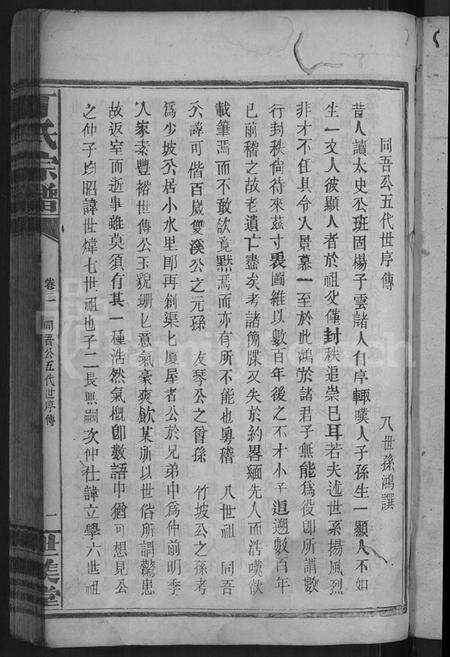 同吾公五代世序傳
八世孫鴻譔
昔人讀太史公班固楊子雲諸人自序輙嘆人子孫生一顯人不如
生一文人彼顯人者於祖父僅封秩追崇已耳若夫述世系揚風烈
非才不任具令人景慕一至於此鴻於諸君子無能為役即所謂數
行封秩尚待來茲寸裘圖維以數百年後之不才小子追遡數百年
已前稽之故老遺亡盡矣考諸簡牒又失於約畧緬先人而浩嘆欲
載筆焉而不敢欲竟黙焉而亦有所不能也粤稽 八世祖 同吾
公諱可偕百歲雙溪公之元孫 友琴公之曾孫 竹坡公之孫考
為少坡公居小水里即再創渠上厦屋者公於兄弟中為仲前明季
人家素豐裕世傳公玉貌珊上意氣豪爽飲某所以世俗所謂驚患
故返室而逝事雖莫須有其一種浩然氣概即數語中猶可想見公
之仲子均昭諱世煒七世祖也子二長熙嗣次仲仕諱立學六世祖
氏宗譜
卷二
同吾公五代世序傳
一
世美堂